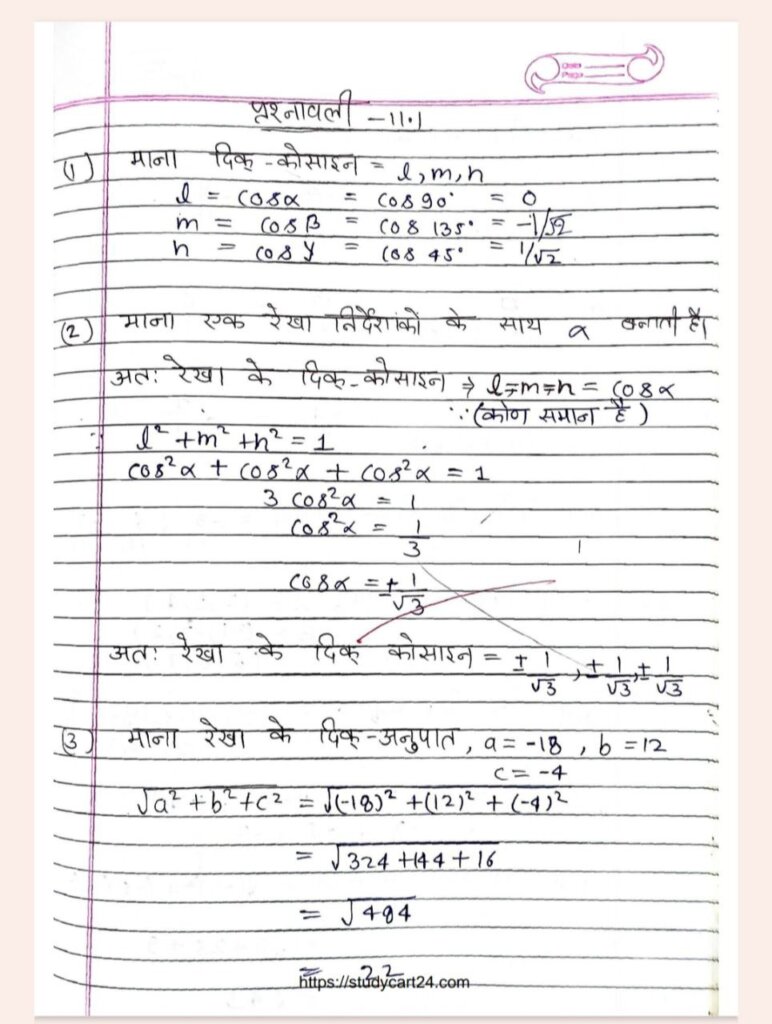 प्रश्नावली - 11.1
(1) माना दिक्-कोसाइन = l, m, n
l = cosα = cos 90° = 0
m = cosβ = cos 135° = -1/√2
n = cosγ = cos 45° = 1/√2
(2) माना एक रेखा निर्देशांकों के साथ α बनाती है।
अतः रेखा के दिक्-कोसाइन ⇒ l = m = n = cosα
∵ (कोण समान है)
∵ l² + m² + n² = 1
cos²α + cos²α + cos²α = 1
3 cos²α = 1
cos²α = 1/3
cosα = ± 1/√3
अतः रेखा के दिक् कोसाइन = ± 1/√3, ± 1/√3, ± 1/√3
(3) माना रेखा के दिक्-अनुपात, a = -18, b = 12
c = -4
√a² + b² + c² = √(-18)² + (12)² + (-4)²
= √324 + 144 + 16
= √484
= 22
https://studycart24.com